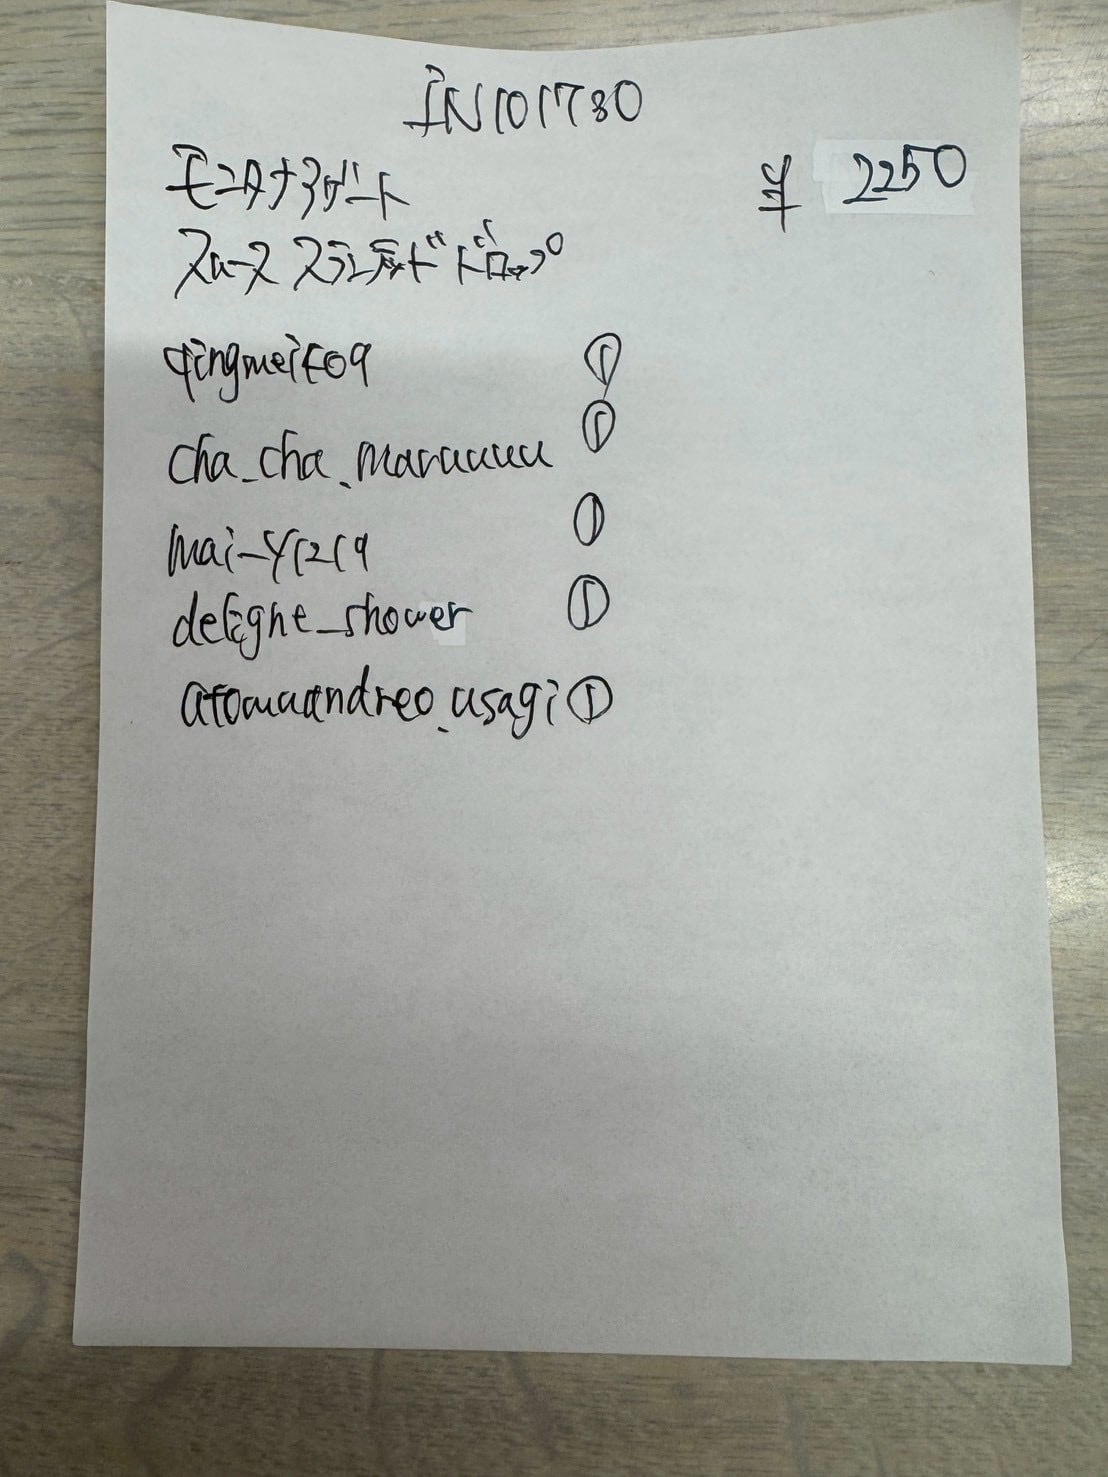 IN101780
モンタナアゲート ¥ 2250
スムース スランテッド ドロップ
qingmeito9 ①
cha_cha_maruuuuu ①
mai_y1219 ①
delight_shower ①
atomuandreo_usagi ①